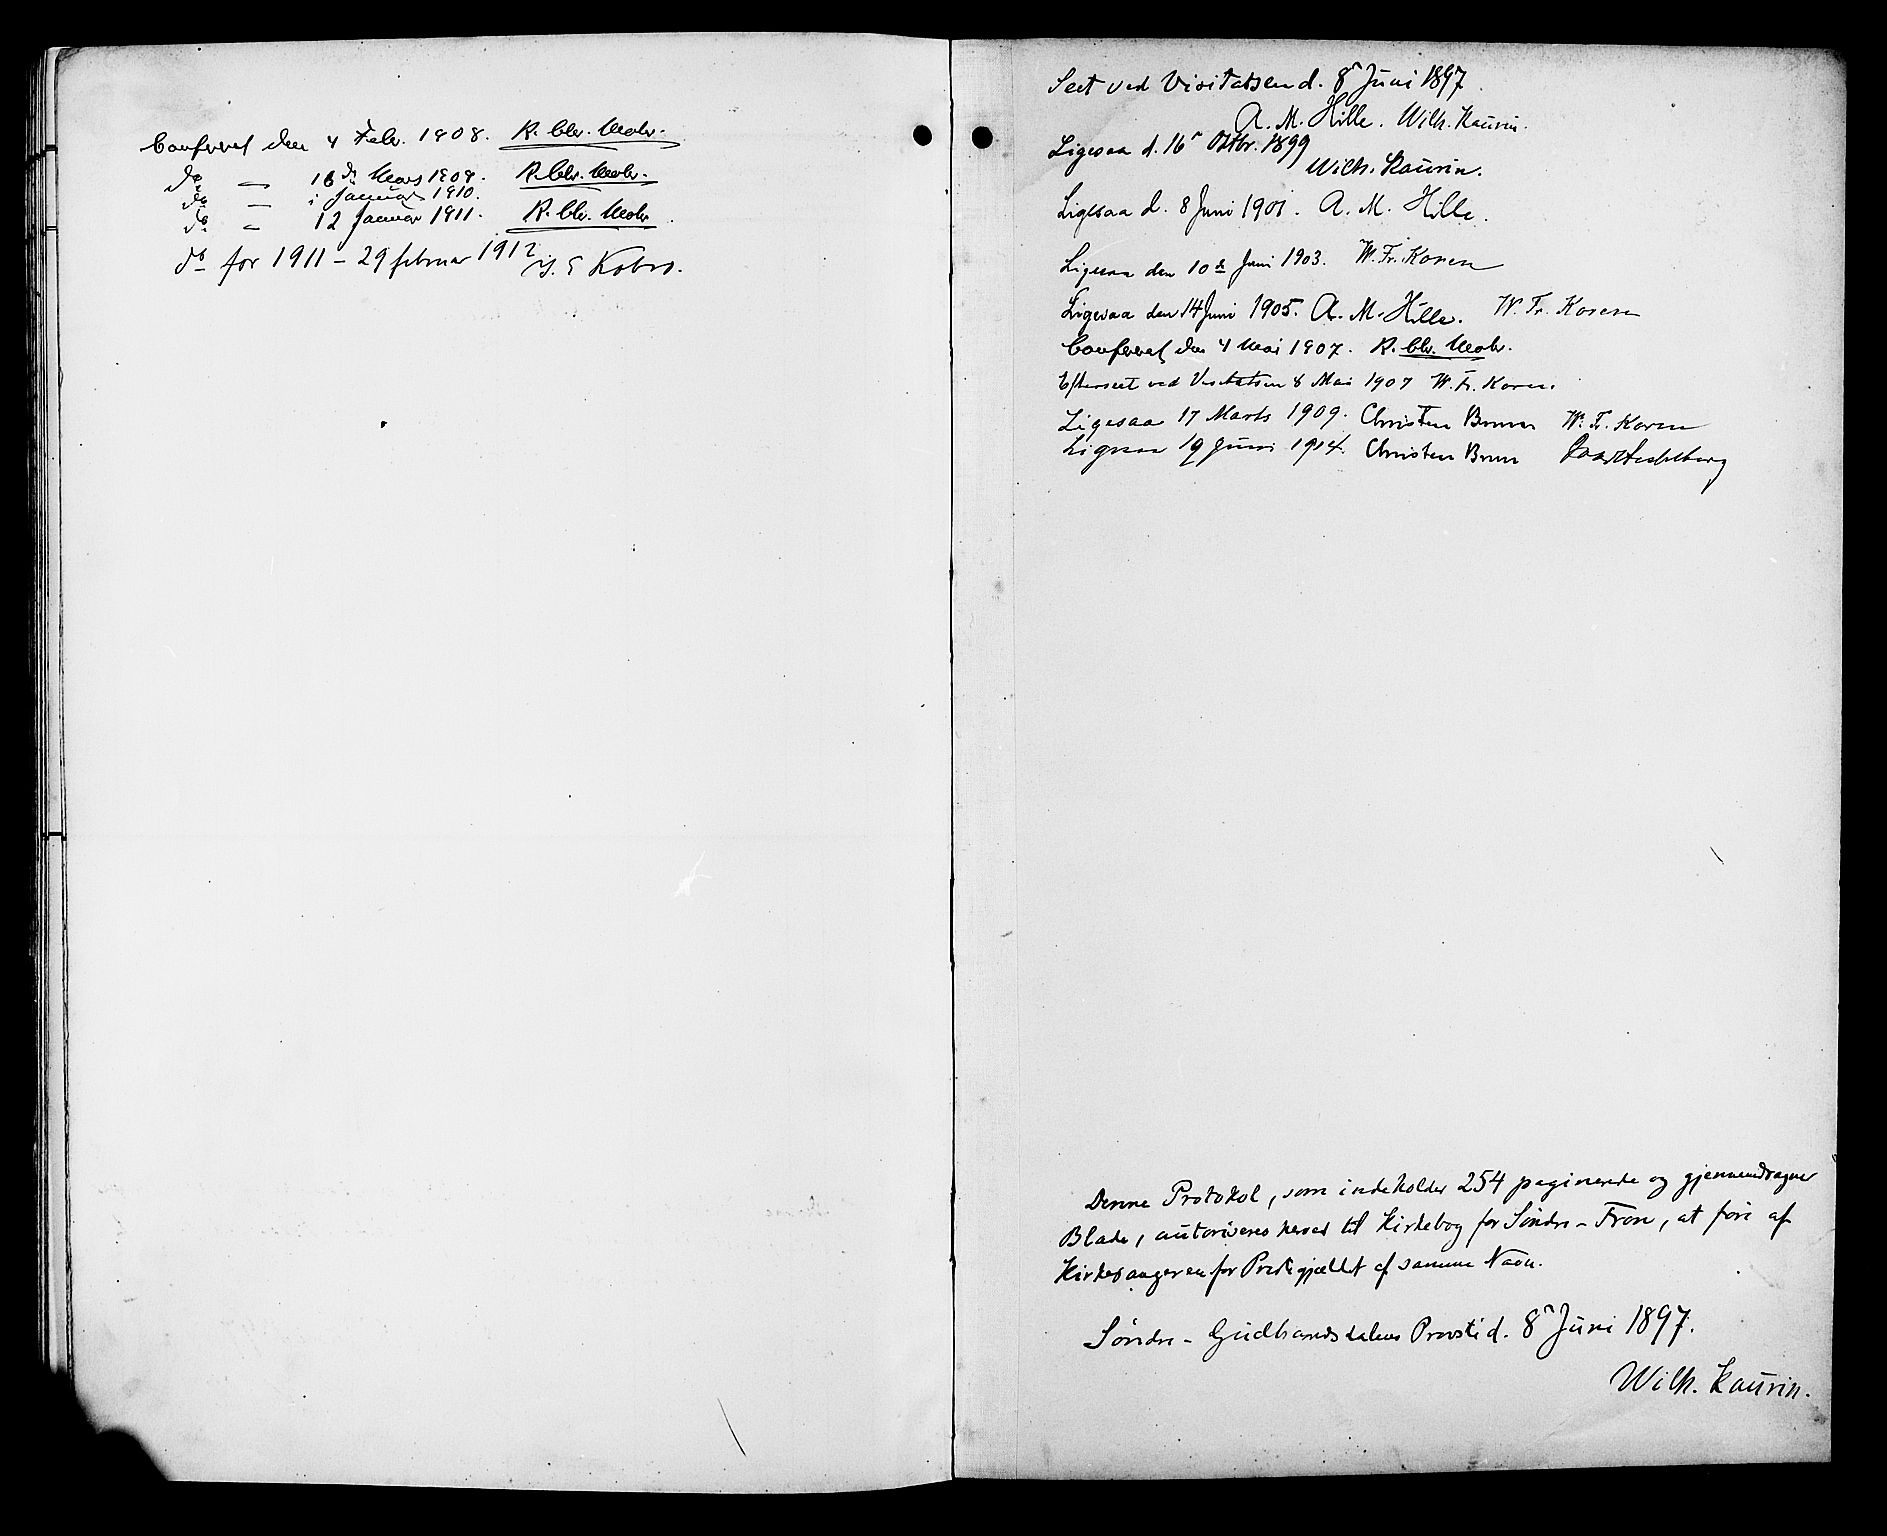 Conferert den 4 Febr. 1908. R. Chr. Mohr.
do — 16de Mars 1909. R. Chr. Mohr.
do — i Januar 1910.
do — 12 Januar 1911. R. Chr. Mohr
do for 1911 – 29 februar 1912 E Kobro.
Seet ved Visitatsen d. 8r Juni 1897
A. M. Hille. Wilh. Kaurin.
Ligesaa d. 16r Oktbr. 1899
Wilh. Kaurin.
Ligesaa d. 8 Juni 1901. A. M. Hille.
Ligesaa den 10de Juni 1903. W. Fr. Koren
Ligesaa den 14 Juni 1905. A. M. Hille. W. Fr. Koren
Conferert den 4 Mai 1907. R. Chr. Mohr.
Efterseet ved Visitatsen 8 Mai 1907 W. Fr. Koren.
Ligesaa 17 Marts 1909. Christen Brun W. Fr. Koren
Ligesaa 19 Juni 1914. Christen Brun
Denne Protokol, som indeholder 254 paginerede og gjennemdragne
Blade, autoriseres herved til Kirkebog for Søndre-Fron, at føre af
Kirkesangeren for Prestegjældet af samme Navn.
Søndre-Gudbrandsdalens Provsti d. 8r Juni 1897.
Wilh. Kaurin.